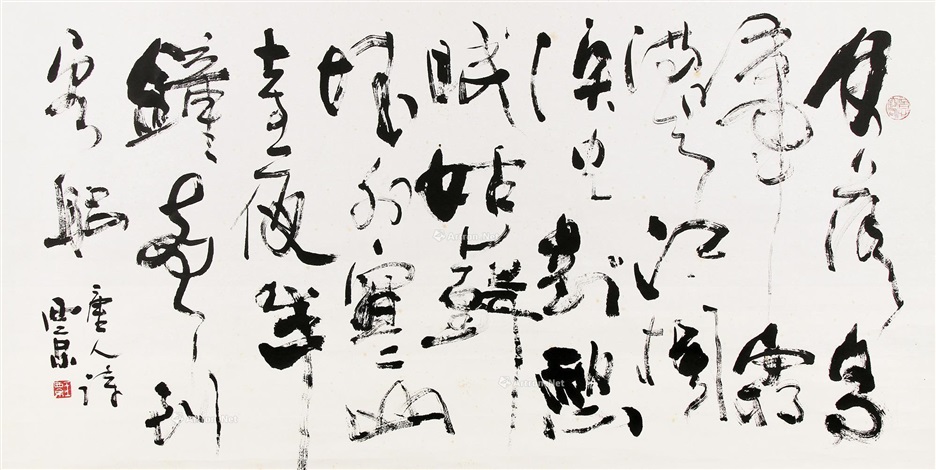 月落烏
啼霜
滿天江楓
漁火對愁
眠姑蘇
城外寒山
寺夜半
鐘聲到
客船
唐人詩